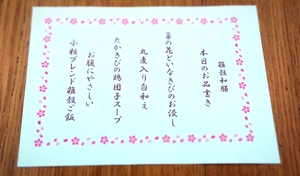 雑穀和膳
本日のお品書き
菜の花といなきびのお浸し
丸麦入り白和え
たかきびの鶏団子スープ
お腹にやさしい
小粒ブレンド雑穀ご飯